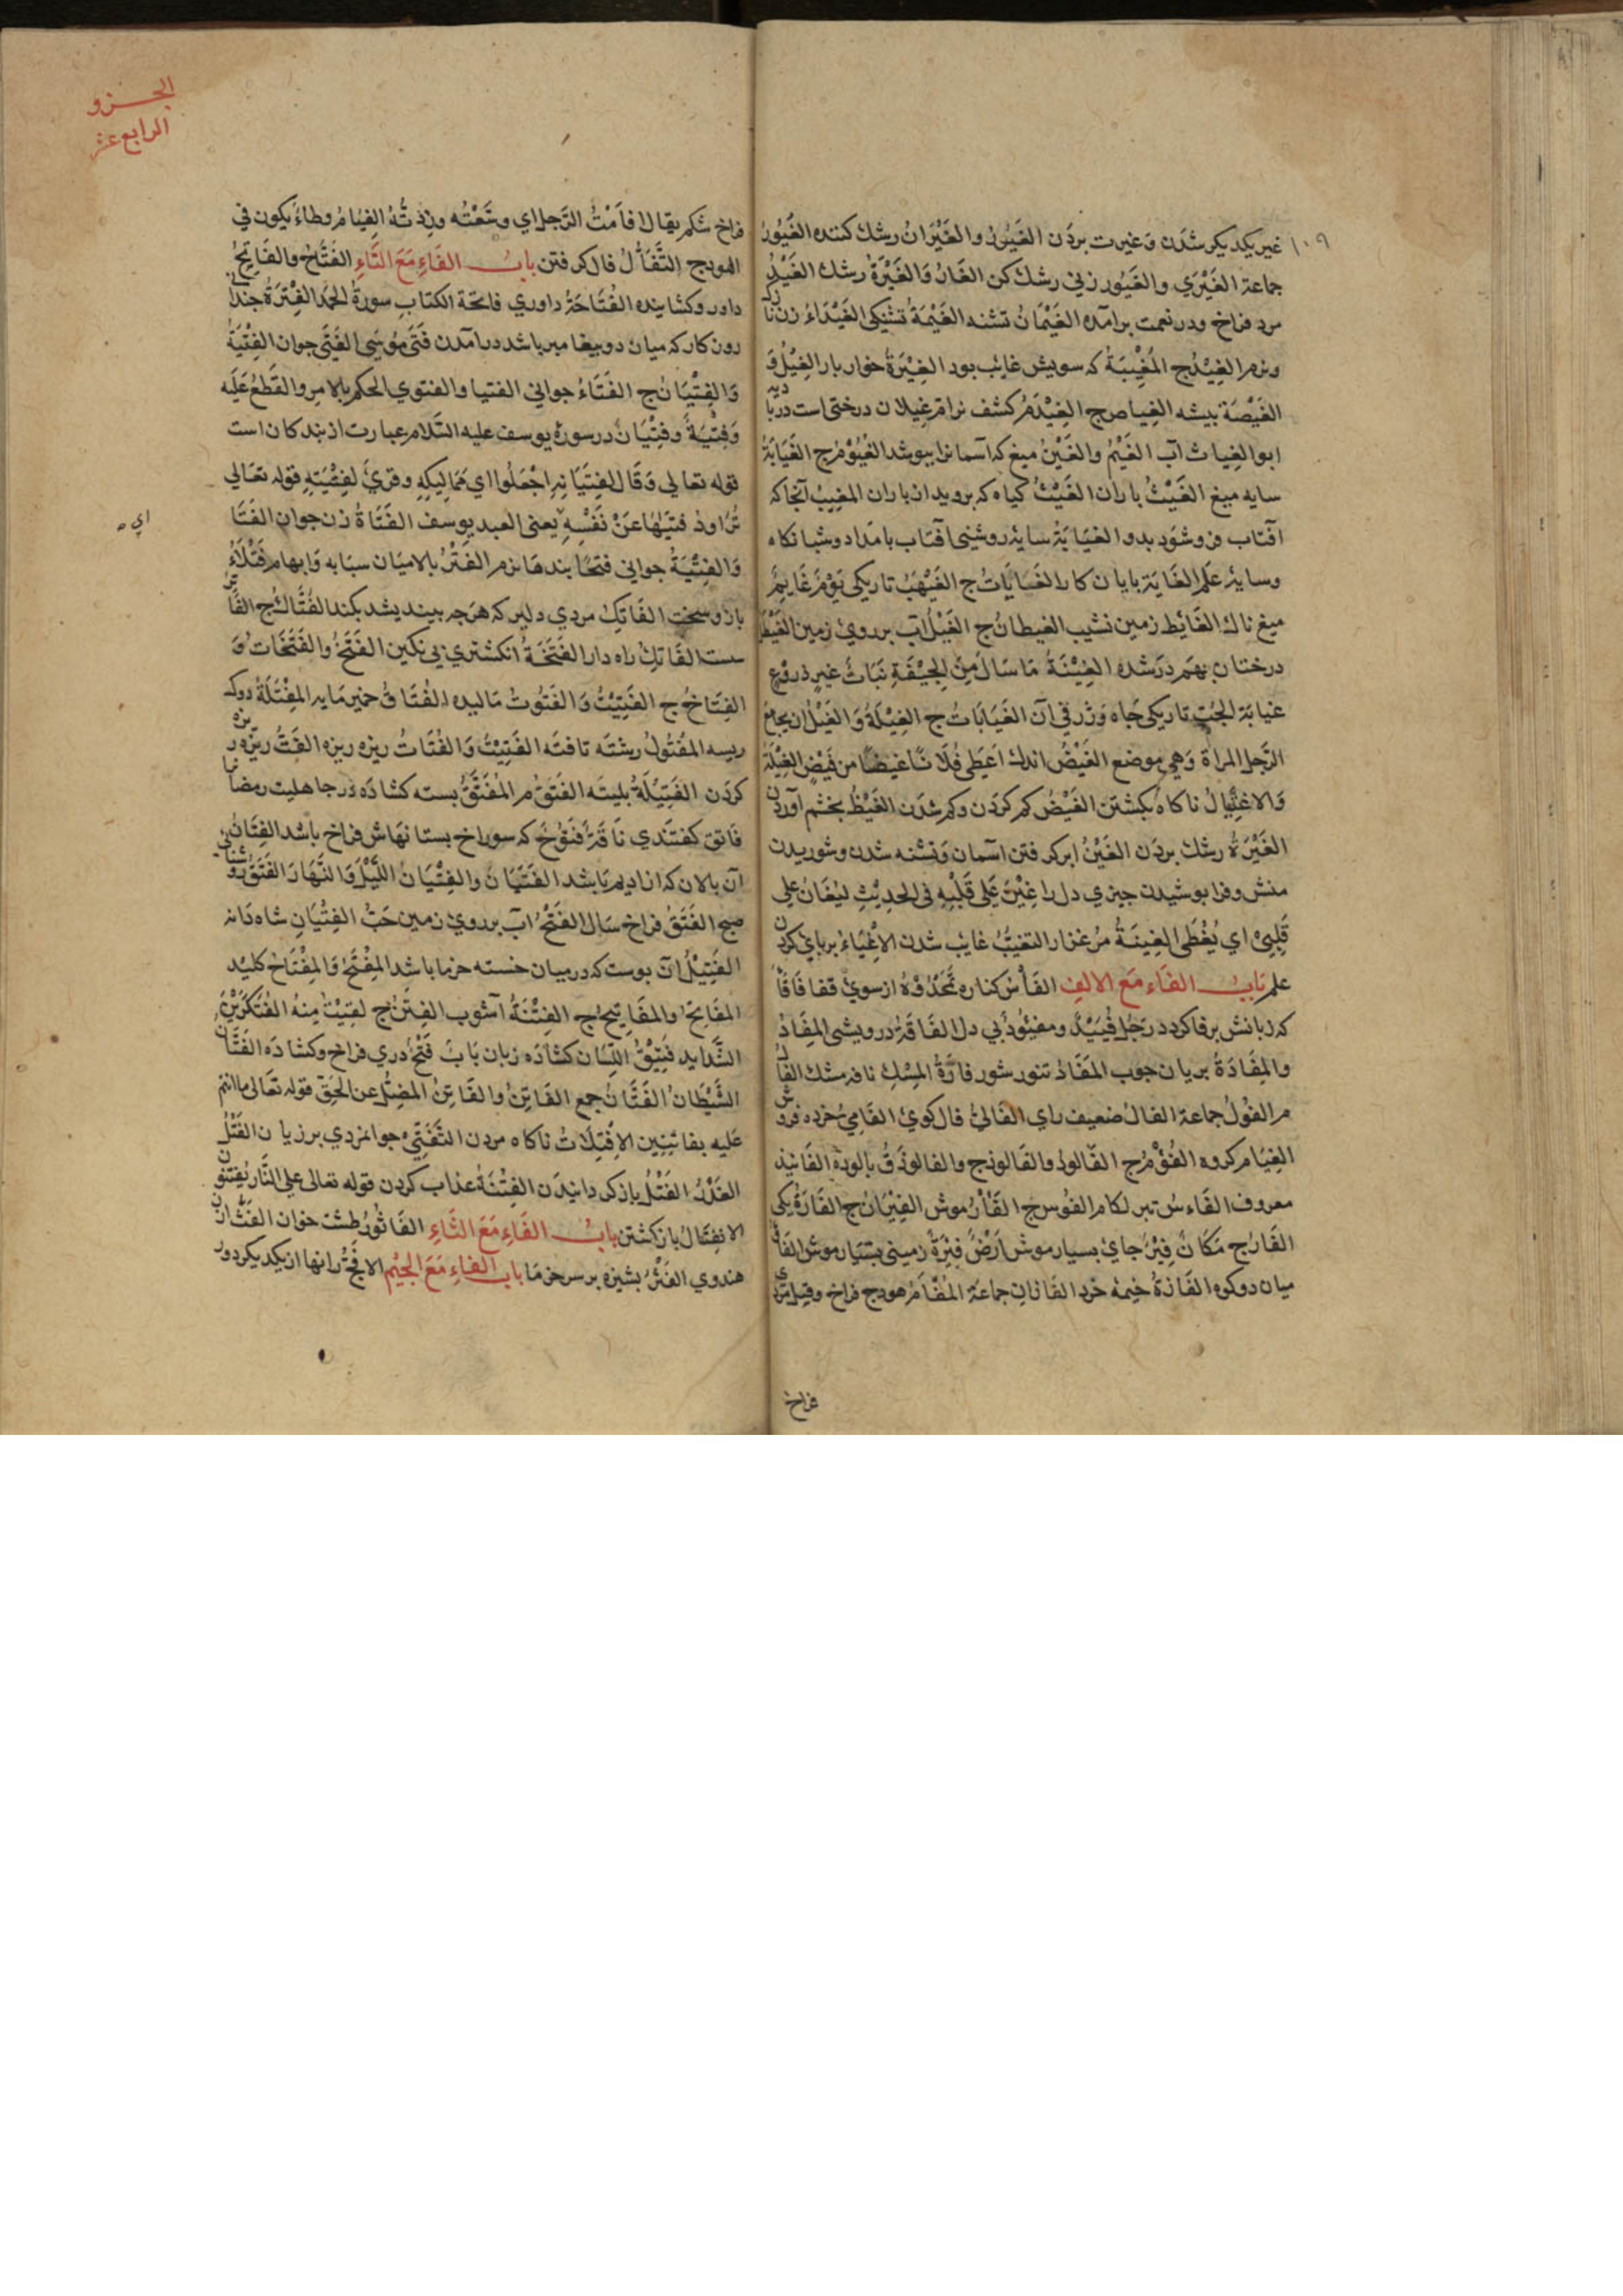 ١٠٩
غیر یکدیکر شدن و غیرت بردن الغَیُوْرُ والغَیْرَانُ رشك کننده الغَیُوْرُ
جماعة الغَیْرٰی والغَیُور زنی رشك کن الغَارُ وَالغَیْرَةُ رشك الغَیْدُ
مرد فراخ ودر نعمت برآمده الغَیْمَانُ تشنه الغَیْمَةُ تشنکی الغَیْدَاءُ زن نا
ونرم الغِیْدُ ج المُغِیْبَةُ که شویش غایب بود الغِیْرَةُ خوار بار الغِیْلُ وَ
الغَیْضَة بیشه الغِیاض ج الغَیْدَمُ کشف نر ام غیلان درختی است در با
دیه
ابو الغِیاث آب الغَیْمُ والغَیْنُ میغ که آسمانرا بپوشد الغُیُوْمُ ج الغَیَابَةُ
سایه میغ الغَیْثُ باران الغَیْثُ کیاه که بروید از باران المَغِیْبُ آنجا که
آفتاب فرو شود بدو الغیَایَة سایهٔ روشنی آفتاب بامداد و شبانکاه
وسایهٔ علم الغَایَة پایان کار الغَایَاتُ ج الغَیْهَبُ تاریکی یَوْمٌ غَایِمٌ
میغ ناك الغَائِط زمین نشیب الغیطانُ ج الغَیْلُ آب بر روی زمین
درختان بهم در شده الغِیْنَةُ مَا سَالَ مِنَ الجِیْفَةِ نَبَاتٌ غیر ذو زرع
غیابَة الجُبّ تاریکی چاه وَژرفی آن الغَیَابَاتُ ج الغِیْلَةُ وَالغَیْلُ ان یجامع
الرَّجل المراة وَهی موضع الغَیْضُ اندك اَعْطٰی فُلَانًا غَیضًا من فَیضٍ الغِیْلَة
وَالاغتِیَالُ ناکاه بکشتن الغَیْضُ کم کردن وکم شدن الغَیْظُ بخشم آوردن
الغَیْرَةُ رشك بردن الغَیْنُ ابر کرفتن آسمان وَتشنه شدن وشوریدن
منش وفرا پوشیدن چیزی دل را غِیْنَ عَلٰی قَلْبِهِ فی الحدِیْثِ لیُغَانُ علی
قَلْبِیْ ای یُغْطٰی الغِینَةُ مُرغزار التغیبُّ غایب شدن الاِغْیَاءُ بر پای کردن
علم بَابُ الفَاء مَعَ الالِف الفَأْسُ کناره از سوی قفا فَافَا
که زبانش برفا کردد رَجُلٌ فَیِیْدٌ ومفئُودٌ بی دل الفَاقَةُ درویشی المِفَادُ
والمِفَادَةُ بریان جوب المفَادُ تنور شور فارَةُ المِسْكِ نافه مشك الفَا
م الفُولُ جماعة الفالُ ضعیف رای الفَالیُّ فال کوی الفَامِیُّ خرده فرو
ش
الفِیَام کروه الفُؤْمُ ج الفَالوذُ والفَالوذج والفالوذَقُ پالوده الفَانید
معروف الفَاءسُ تبر لکام الفُوسُ ج الفَأْرُ موش الفِئرَانُ ج الفَارَةُ یکی
الفَارُ ج مَکَانٌ فِئِرٌ جای بسیار موش اَرْضٌ فِئِرَةٌ زمینی بسیار موش
میان دو کوه الفَازَةُ خیمهٔ خُرد الفَازاتُ جماعة المُفْاَمُ هودج فراخ وقیل
فراخ
الجـــزو
الرابع عشر
فراخ شکم یقال افأَمْتُ الرَّحلَ ای وسَّعْتُه وزِدْتُّهُ الفِیَامُ وطاءٌ یکون فی
الهودج التَّفَأُّلُ فال کرفتن بابُ الفَاءِ مَعَ التَّاءِ الفَتَّاحُ والفَاتِحُ
داور وکشاینده الفُتَاحَةُ داوری فاتحَة الکتاب سورةُ الحَمْدِ الفَتْرَةُ جندا
رون کار که میان دو پیغامبر باشد در آمدن فَتٰی مُوْسٰی الفَتٰی جوان الفِتْیَةُ
وَالفِتْیَانُ ج الفَتَاءُ جوانی الفتیا والفتوی الحکم بالامر والقَطعُ عَلَیه
وَفِتْیَةٌ وَفِتْیَانٌ در سورهٔ یوسف علیه السَّلام عبارت از بندکان است
قوله تعالی وَقَالَ لفِتْیَانِهِ اجْعَلُوا ای ممَالِیکِهِ وقُرِئَ لِفِتْیَتِهِ قوله تعَالی
تُرَاوِدُ فتٰیهَا عَنْ نَفْسِهِ یعنی العبد یوسف الفَتَاةُ زن جوان الفتَا
ای ه
وَالفِتْیَةُ جوانی فتخًا بندها نرم الفِتْرُ بالا میَان سبابه وَابهام فَتْلَاءُ
بازو سخت الفَاتِكُ مردی دلیر که هرچه بیندیشد بکند الفُتَّاكُ ج الفَا
سست الفَاتِكُ راه دار الفَتَخَةُ انکشتری بی نکین الفَتَخُ والفَتَخَاتُ وَ
الفِتَاخُ ج الفَتِیْتُ وَالفَتُوتُ مَالیده الفُتَاقُ خمیر مَایه المِفْتَلَةُ دوکه
ریسه المَفْتُولُ رشتَه تافتَه الفَتِیْتُ وَالفُتَاتُ ریزه ریزه الفَتُّ ریزه ر
یزه
کردن الفَتِیْلَةُ پلیته الفَتَقُ م المُفَتَّقُ بسته کشادَه در جاهلیت رمضا
فَاتق کفتندی نَاقَةٌ فَتُوْحٌ که سوراخ بستانهَاش فراخ باشد الفِتَانُ
آن پالان که از ادیم بَاشد الفَتَیَانُ والفِتْیَانُ اللَّیْلُ وَالنَّهَارَ الفَتَقُ رو
شنائی
صبح الفَتَقُ فراخ سَال الفَتْحُ آب بر روی زمین حَبُّ الفِتْیَانِ شاه دَانه
الفَتِیْلُ آن پوست که در میان خسته خرما باشد المِفْتَحُ وَالمِفْتَاحُ کلید
المفَاتِحُ والمفَاتِیحُ ج الفِتْنَةُ آشوب الفِتَنُ ج لقِیْتُ مِنهُ الفُتَکْرَیْنِ
الشَّدَاید فَتِیْقُ اللِّسَان کشادَه زبان بَابٌ فُتُحٌ دری فراخ وکشادَه الفَتَّان
الشَّیْطَانُ الفُتَّانُ جمع الفَاتِنُ والفَاتِنُ المضِلُّ عن الحَقّ قوله تعَالی ما انتم
عَلیه بفاتِنِین الاِفْتِلَاتُ ناکاه مردن التَّفَتِّی جوانمردی برزیان الفَتْلُ
الغَدْرُ الفَتْلُ بازکردانیدَن الفِتْنَةُ عذاب کردن قوله تعالی عَلی النَّارِ یُفْتَنُو
ن
الانفِتَالُ بازکشتن بابُ الفَاءِ مَعَ الثَّاءِ الفَاثُورُ طشت خوان
هندوی الفَثْرُ پشیزه بر سر خرما بابُ الفَاءِ مَعَ الجِیْم الافجُّ رانها از یکدیکر دور